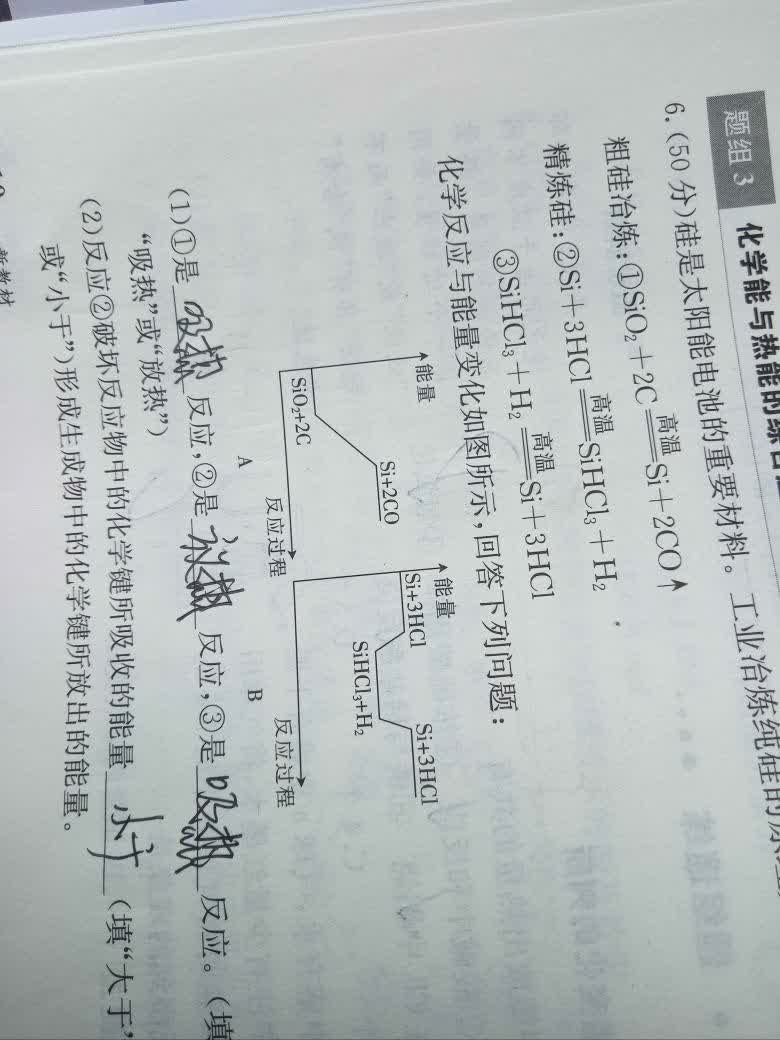 题组3 化学能与热能的综合
6.(50分)硅是太阳能电池的重要材料。工业冶炼纯硅的原
粗硅冶炼:①SiO₂+2C 高温 Si+2CO↑
精炼硅:②Si+3HCl 高温 SiHCl₃+H₂
③SiHCl₃+H₂ 高温 Si+3HCl
化学反应与能量变化如图所示,回答下列问题:
能量
Si+2CO
SiO₂+2C
反应过程
A
能量
Si+3HCl
SiHCl₃+H₂
Si+3HCl
反应过程
B
(1)①是 吸热 反应,②是 放热 反应,③是 吸热 反应。(填
“吸热”或“放热”)
(2)反应②破坏反应物中的化学键所吸收的能量 小于 (填“大于”
或“小于”)形成生成物中的化学键所放出的能量。
新教材